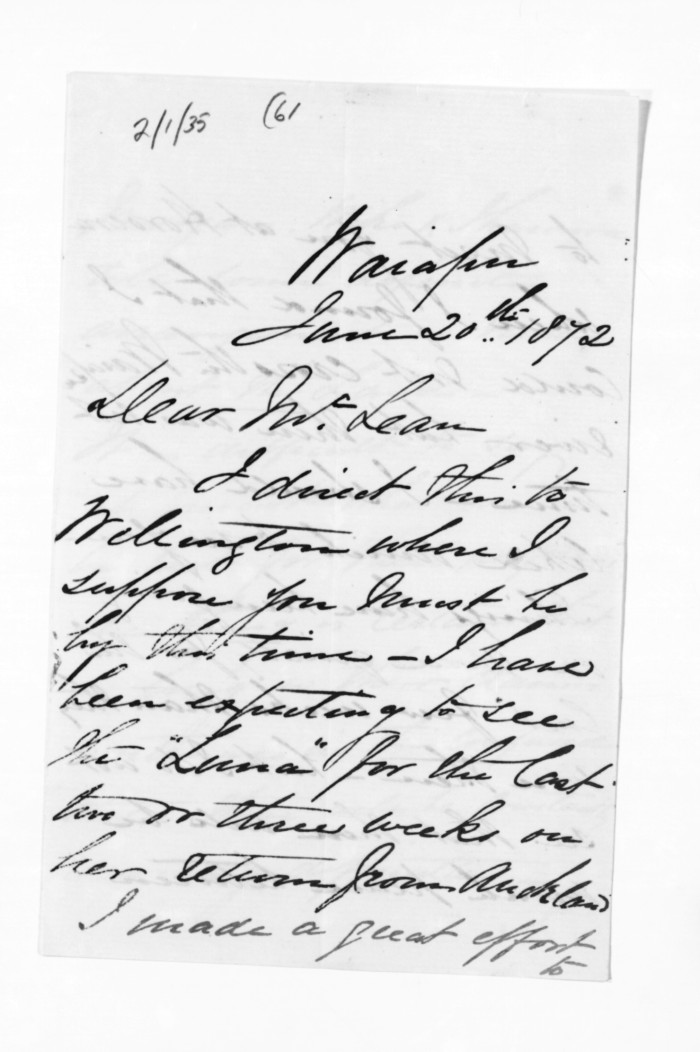 2/1/35 (61
Waiapu
June 20th 1872
Dear Mr. Lean
I direct this to
Wellington where I
suppose you must be
by this time - I have
been expecting to see
the "Luna" for the last
two or three weeks on
her return from Auckland
I made a great effort
to